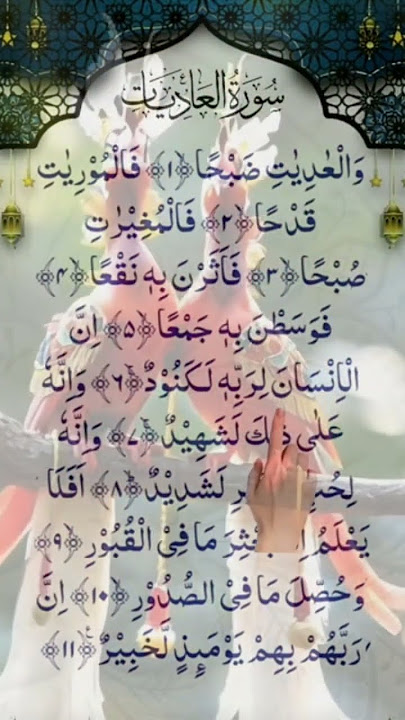 سُورَةُ العَادِيَاتِ
وَالْعٰدِيٰتِ ضَبْحًا ﴿۱﴾ فَالْمُوْرِيٰتِ
قَدْحًا ﴿۲﴾ فَالْمُغِيْرٰتِ
صُبْحًا ﴿۳﴾ فَاَثَرْنَ بِهٖ نَقْعًا ﴿۴﴾
فَوَسَطْنَ بِهٖ جَمْعًا ﴿۵﴾ اِنَّ
الْاِنْسَانَ لِرَبِّهٖ لَكَنُوْدٌ ﴿۶﴾ وَاِنَّهٗ
عَلٰى ذٰلِكَ لَشَهِيْدٌ ﴿۷﴾ وَاِنَّهٗ
لَشَدِيْدٌ ﴿۸﴾ اَفَلَا
يَعْلَمُ مَا فِى الْقُبُوْرِ ﴿۹﴾
وَحُصِّلَ مَا فِى الصُّدُوْرِ ﴿۱۰﴾ اِنَّ
رَبَّهُمْ بِهِمْ يَوْمَئِذٍ لَّخَبِيْرٌ ﴿۱۱﴾